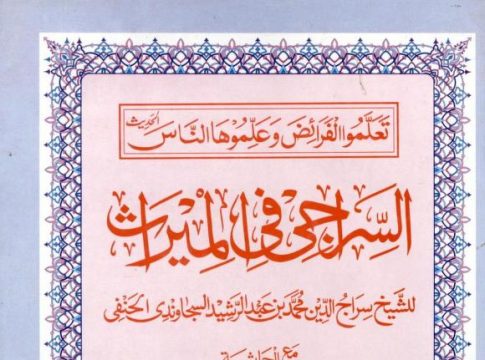 تَعَلَّمُوا الْفَرَائِضَ وَعَلِّمُوْهَا النَّاسَ الحديث
السِّرَاجِى فِى الْمِيْرَاثِ
لِلشَّيْخ سِرَاجُ الدِّين مُحَمَّد بن عَبْد الرَّشِيْد السجاوندى الحنفى
مع الحاشية